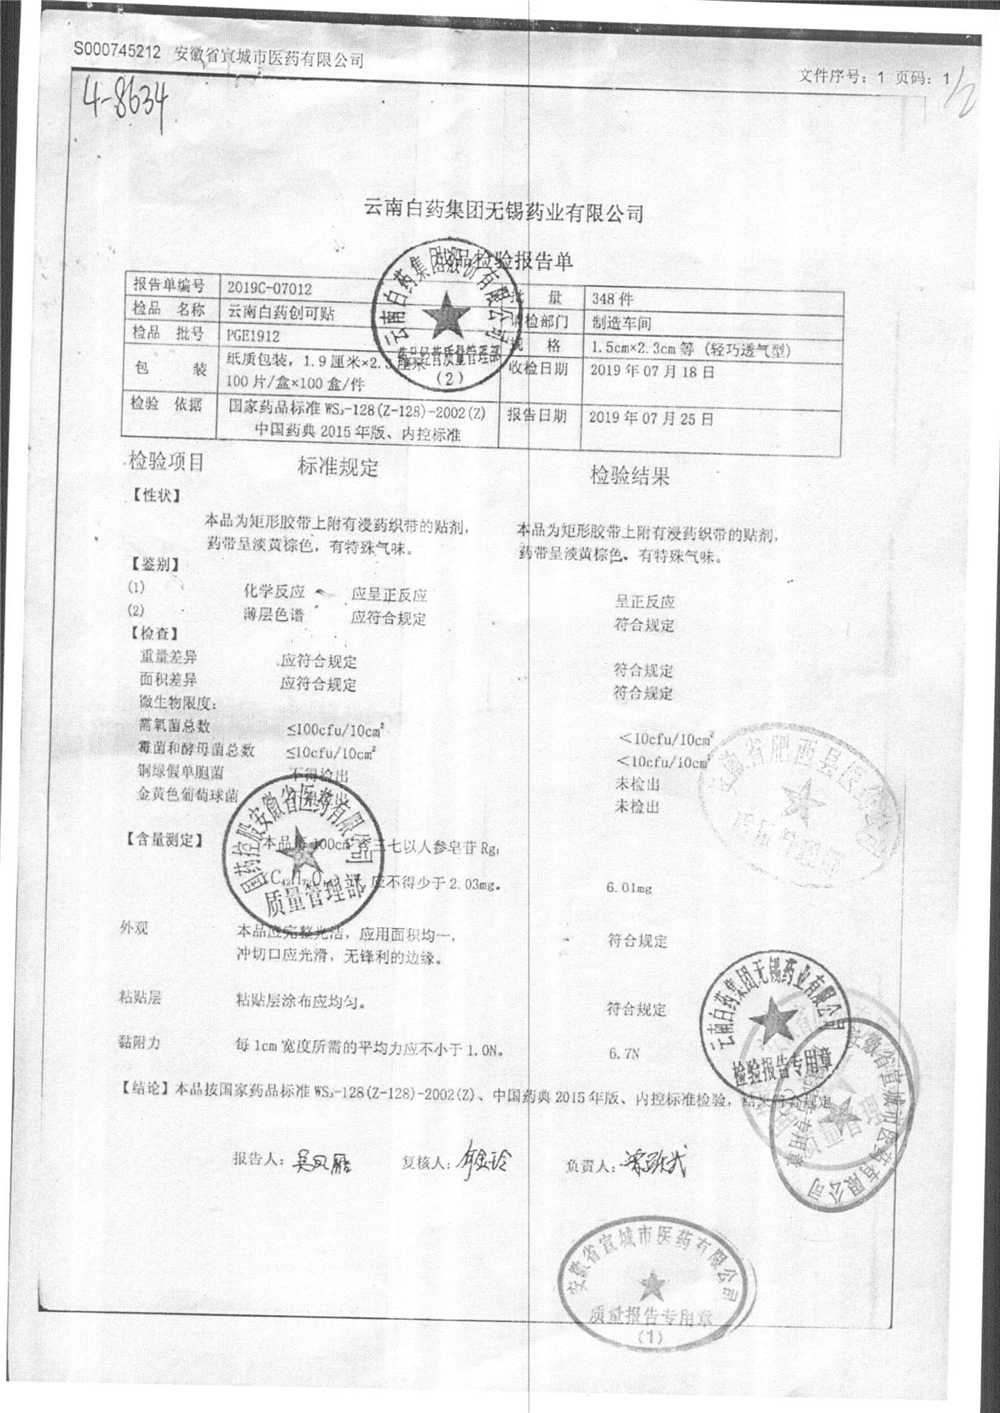 S000745212 安徽省宣城市医药有限公司
文件序号：1 页码：1
1/2
4-8634
云南白药集团无锡药业有限公司
品检验报告单
报告单编号 2019C-07012 量 348 件
检品 名称 云南白药创可贴 请检部门 制造车间
检品 批号 PGE1912 规 格 1.5cm×2.3cm 等（轻巧透气型）
包 装 纸质包装，1.9 厘米×2.3厘米 收检日期 2019 年 07 月 18 日
100 片/盒×100 盒/件
检验 依据 国家药品标准 WS₃-128(Z-128)-2002(Z) 报告日期 2019 年 07 月 25 日
中国药典 2015 年版、内控标准
检验项目 标准规定 检验结果
【性状】
本品为矩形胶带上附有浸药织带的贴剂， 本品为矩形胶带上附有浸药织带的贴剂，
药带呈淡黄棕色，有特殊气味。 药带呈淡黄棕色，有特殊气味。
【鉴别】
(1) 化学反应 应呈正反应 呈正反应
(2) 薄层色谱 应符合规定 符合规定
【检查】
重量差异 应符合规定 符合规定
面积差异 应符合规定 符合规定
微生物限度：
需氧菌总数 ≤100cfu/10cm² ＜10cfu/10cm²
霉菌和酵母菌总数 ≤10cfu/10cm² ＜10cfu/10cm²
铜绿假单胞菌 不得检出 未检出
金黄色葡萄球菌 未检出
【含量测定】 本品每 100cm² 含三七以人参皂苷 Rg₁
应不得少于 2.03mg。 6.01mg
外观 本品应完整光洁，应用面积均一， 符合规定
冲切口应光滑，无锋利的边缘。
粘贴层 粘贴层涂布应均匀。 符合规定
黏附力 每 1cm 宽度所需的平均力应不小于 1.0N。 6.7N
【结论】本品按国家药品标准 WS₃-128(Z-128)-2002(Z)、中国药典 2015 年版、内控标准检验，结果符合规定
报告人： 复核人： 负责人：
云南白药集团股份有限公司
质量管理部
(2)
国药控股安徽省医药有限公司
质量管理部
安徽省肥西县医药
云南白药集团无锡药业有限公司
检验报告专用章
安徽省宣城市医药有限公司
安徽省宣城市医药有限公司
质量报告专用章
(1)